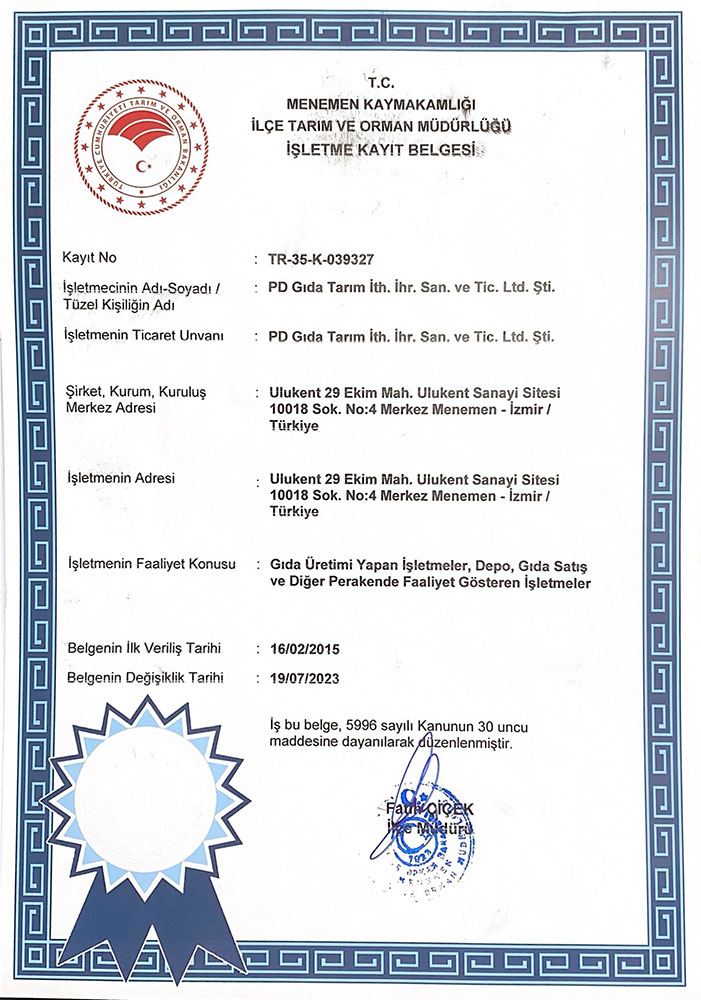 T.C.
MENEMEN KAYMAKAMLIĞI
İLÇE TARIM VE ORMAN MÜDÜRLÜĞÜ
İŞLETME KAYIT BELGESİ
TÜRKİYE CUMHURİYETİ TARIM VE ORMAN BAKANLIĞI
Kayıt No : TR-35-K-039327
İşletmecinin Adı-Soyadı / : PD Gıda Tarım İth. İhr. San. ve Tic. Ltd. Şti.
Tüzel Kişiliğin Adı
İşletmenin Ticaret Unvanı : PD Gıda Tarım İth. İhr. San. ve Tic. Ltd. Şti.
Şirket, Kurum, Kuruluş : Ulukent 29 Ekim Mah. Ulukent Sanayi Sitesi
Merkez Adresi 10018 Sok. No:4 Merkez Menemen - İzmir /
Türkiye
İşletmenin Adresi : Ulukent 29 Ekim Mah. Ulukent Sanayi Sitesi
10018 Sok. No:4 Merkez Menemen - İzmir /
Türkiye
İşletmenin Faaliyet Konusu : Gıda Üretimi Yapan İşletmeler, Depo, Gıda Satış
ve Diğer Perakende Faaliyet Gösteren İşletmeler
Belgenin İlk Veriliş Tarihi : 16/02/2015
Belgenin Değişiklik Tarihi : 19/07/2023
İş bu belge, 5996 sayılı Kanunun 30 uncu
maddesine dayanılarak düzenlenmiştir.
Fatih ÇİÇEK
İlçe Müdürü
1923